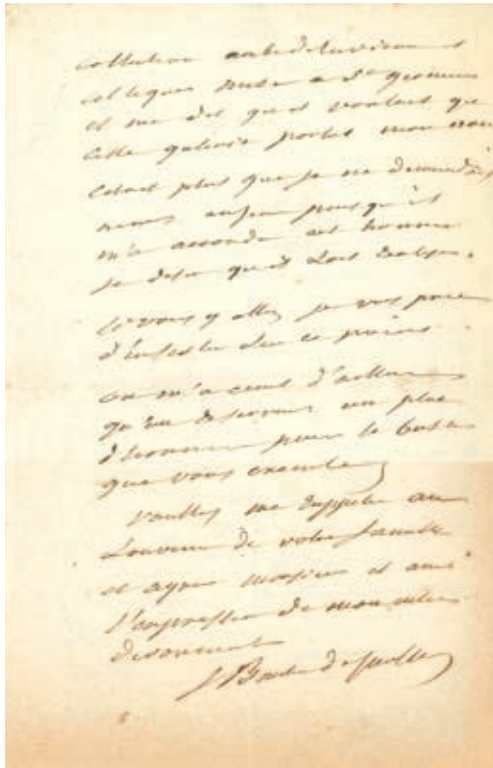 collection antediluvienne et
celtiques mise a St germain
il me dit qu'il voulait que
cette galerie portat mon nom
c'etait plus que je ne demandais
mais enfin puisqu'il
m'a accordé cet honneur
je desire qu'il soit
Si vous y allez je vous prie
d'insister sur ce point.
on m'a ecrit d'ailleurs
qu'on reservait une place
d'honneur pour le buste
que vous executez
veuillez me rappeler au
souvenir de votre famille
et agreer monsieur et ami
l'expression de mon
devouement
J Boucher de Perthes